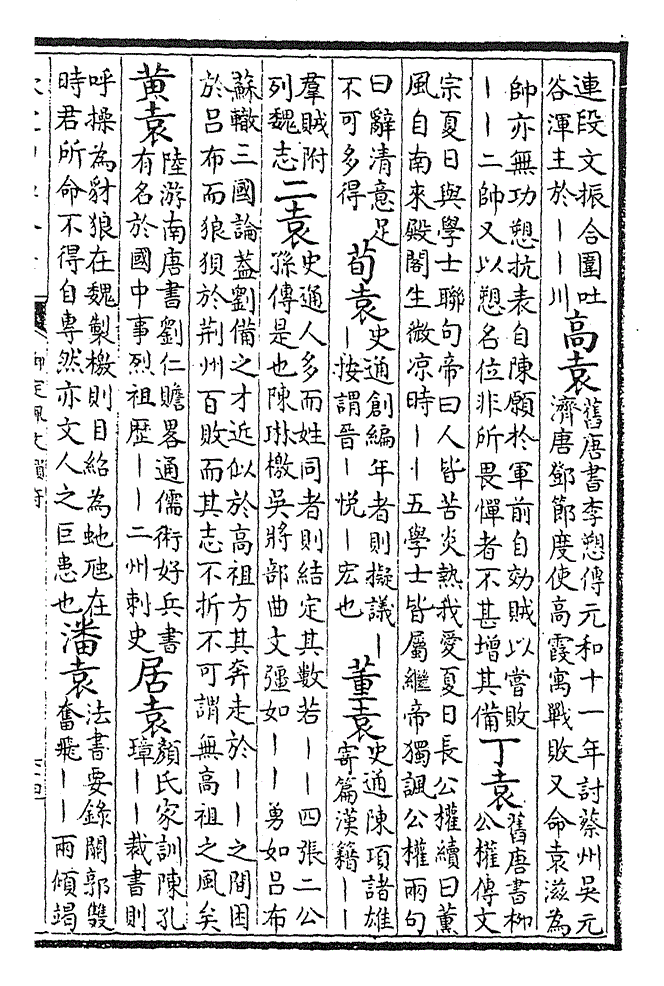 連段文振合圍吐
谷渾主於丨丨川
高袁
舊唐書李愬傳元和十一年討蔡州吳元
濟唐鄧節度使高霞寓戰敗又命袁滋為
帥亦無功愬抗表自陳願於軍前自効賊以嘗敗
丨丨二帥又以愬名位非所畏憚者不甚增其備
丁袁
舊唐書柳
公權傳文
宗夏日與學士聯句帝曰人皆苦炎熱我愛夏日長公權續曰薰
風自南來殿閣生微凉時丨丨五學士皆屬繼帝獨諷公權兩句
曰辭清意足
不可多得
荀袁
史通創編年者則擬議丨
丨按謂晉丨悅丨宏也
董袁
史通陳項諸雄
寄篇漢籍丨丨
羣賊附
列魏志
二袁
史通人多而姓同者則結定其數若丨丨四張二公
孫傳是也陳琳檄吳將部曲文彊如丨丨勇如呂布
蘇轍三國論葢劉備之才近似於高祖方其奔走於丨丨之間困
於呂布而狼狽於荆州百敗而其志不折不可謂無高祖之風矣
黃袁
陸游南唐書劉仁贍畧通儒術好兵書
有名於國中事烈祖歷丨丨二州刺史
居袁
顏氏家訓陳孔
璋丨丨裁書則
呼操為豺狼在魏製檄則目紹為虵虺在
時君所命不得自專然亦文人之巨患也
潘袁
法書要錄關郭雙
奮飛丨丨兩傾竭
御定佩文韻府